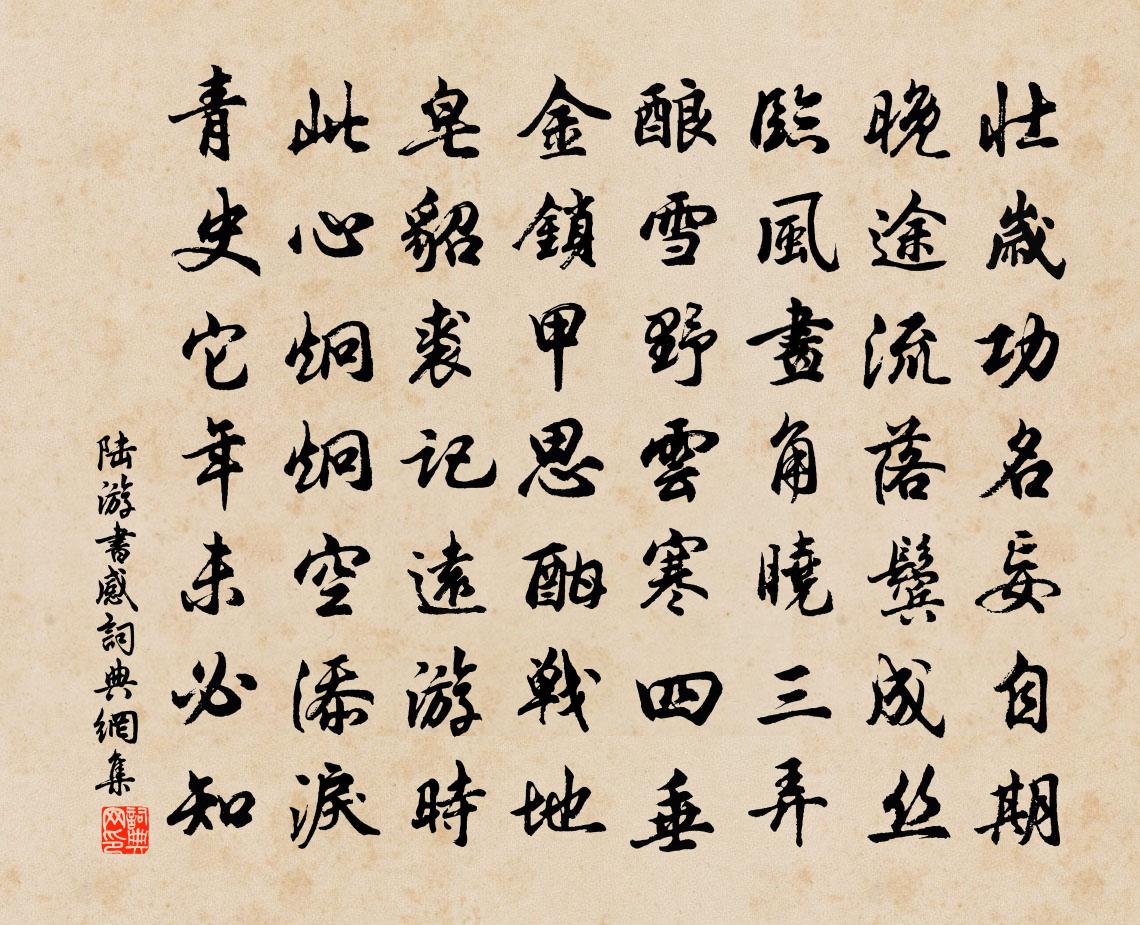 壮歲功名妄自期
晚途流落鬢成丝
臨風畫角曉三弄
酿雪野雲寒四垂
金鎖甲思酣戰地
皂貂裘记遠游時
此心炯炯空添淚
青史它年未必知
陆游書感詞典網集
詞典网印